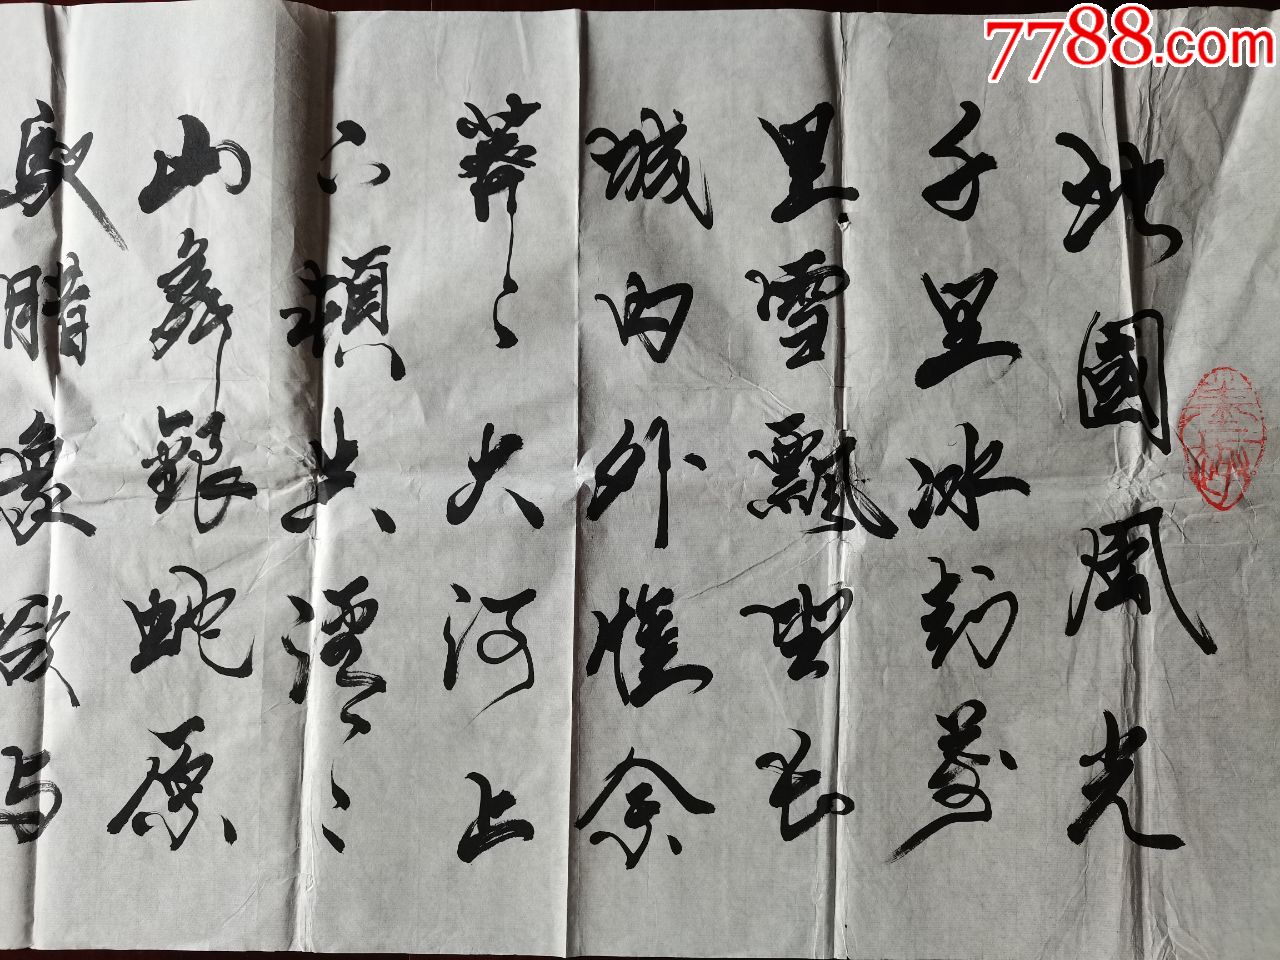 7788.com
北國風光
千里冰封萬
里雪飄望長
城内外惟余
莽〻大河上
下頓失滔〻
山舞銀蛇原
馳腊象欲与